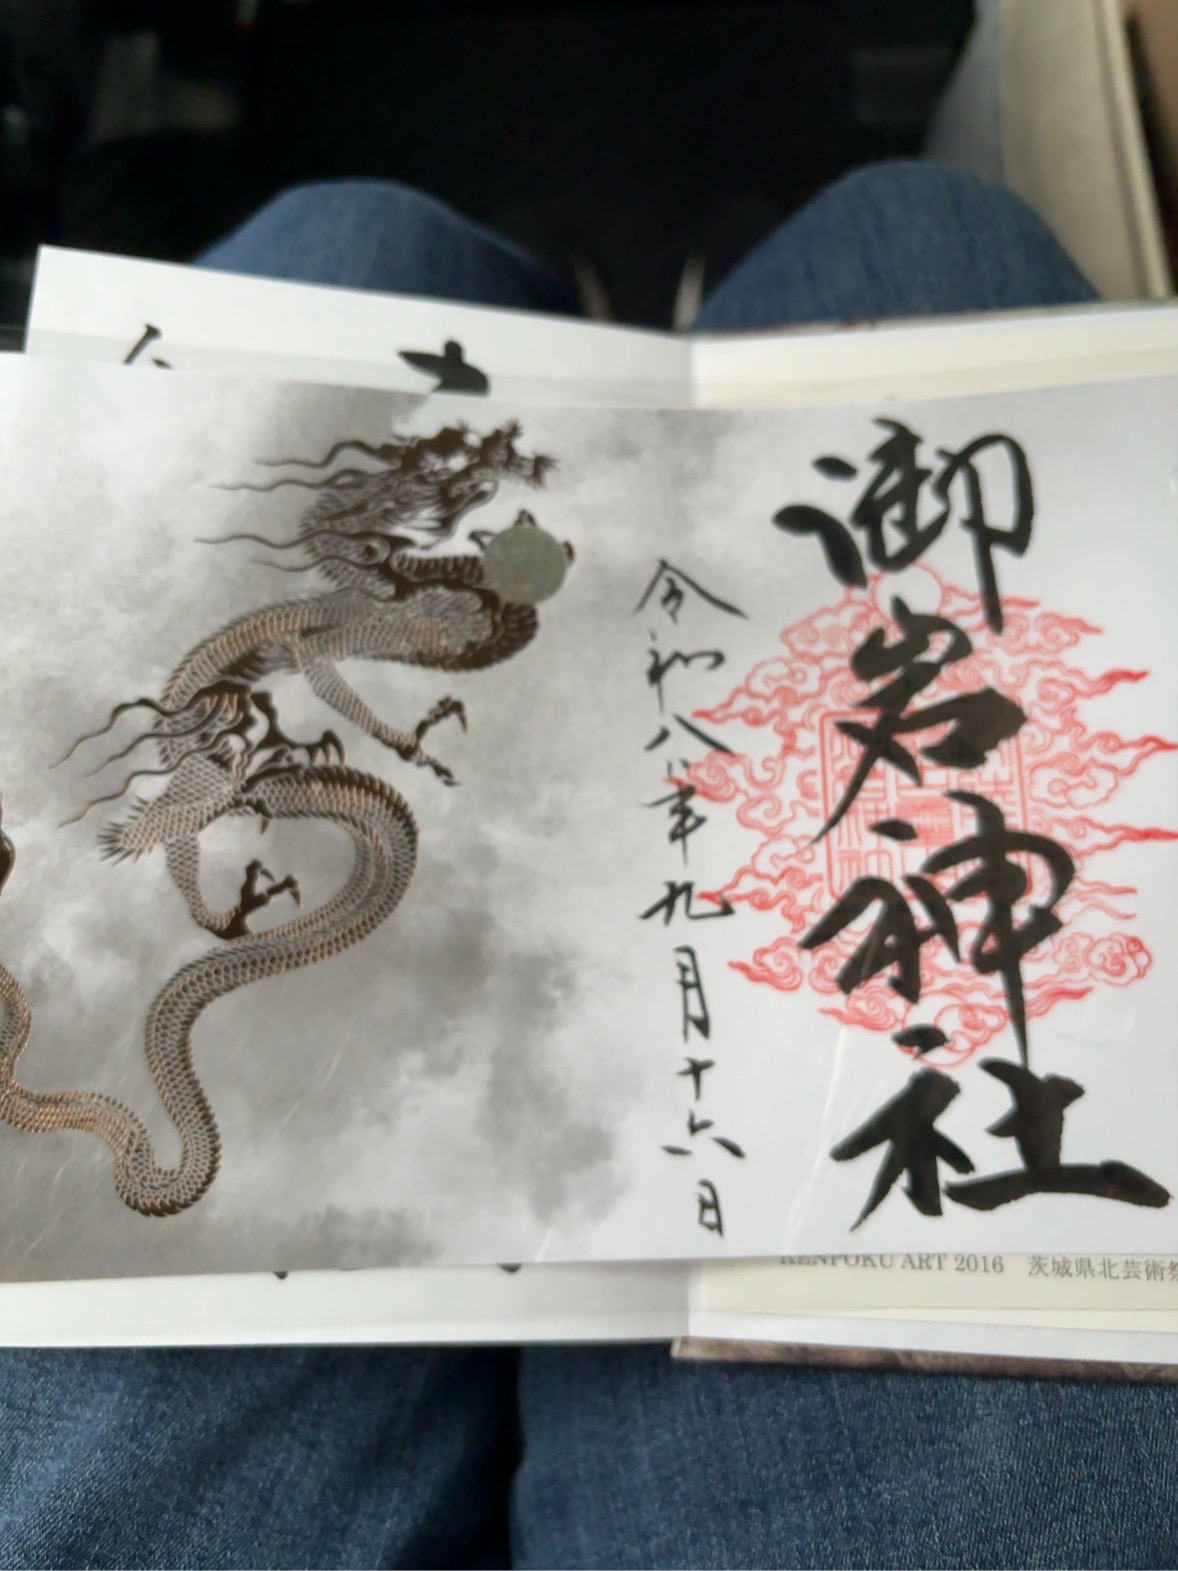 御岩神社
令和八年九月十六日
KENPOKU ART 2016 茨城県北芸術祭